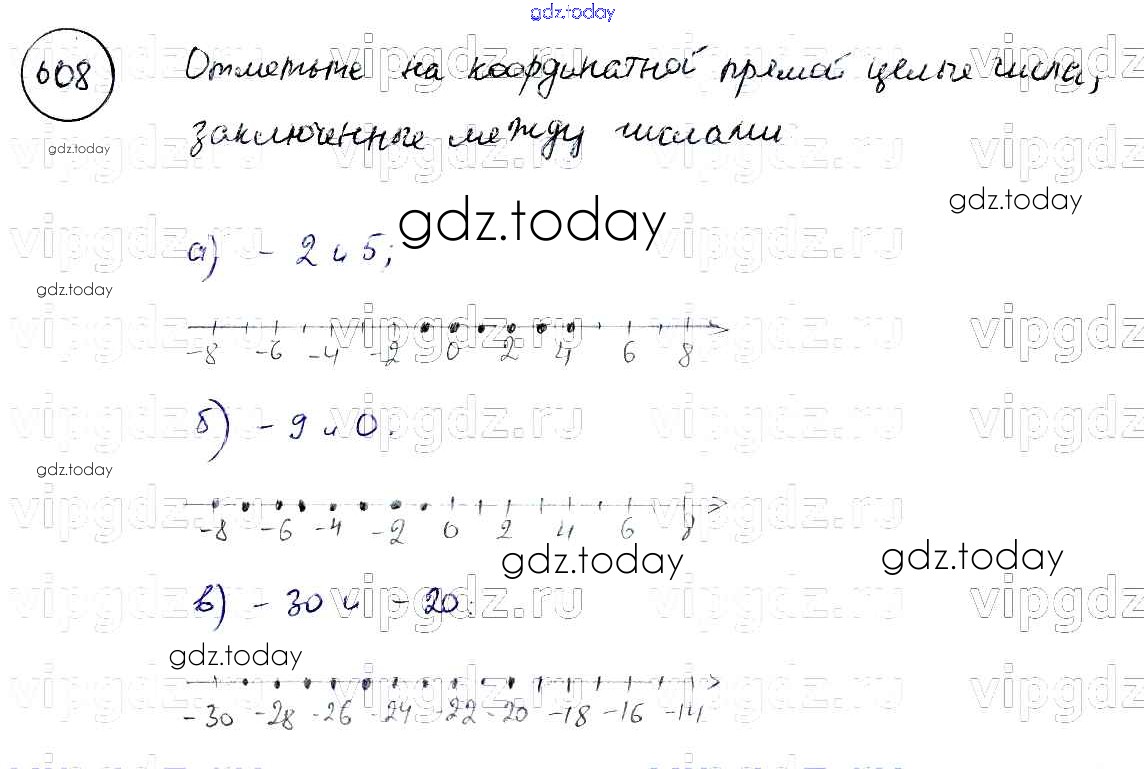 gdz.today
608 Отметьте на координатной прямой целые числа,
заключенные между числами
gdz.today
vipgdz.ru
gdz.today
gdz.today
а) - 2 и 5;
gdz.today
-8 -6 -4 -2 0 2 4 6 8
б) - 9 и 0.
gdz.today
-8 -6 -4 -2 0 2 4 6 8
gdz.today
gdz.today
в) - 30 и - 20.
gdz.today
-30 -28 -26 -24 -22 -20 -18 -16 -14